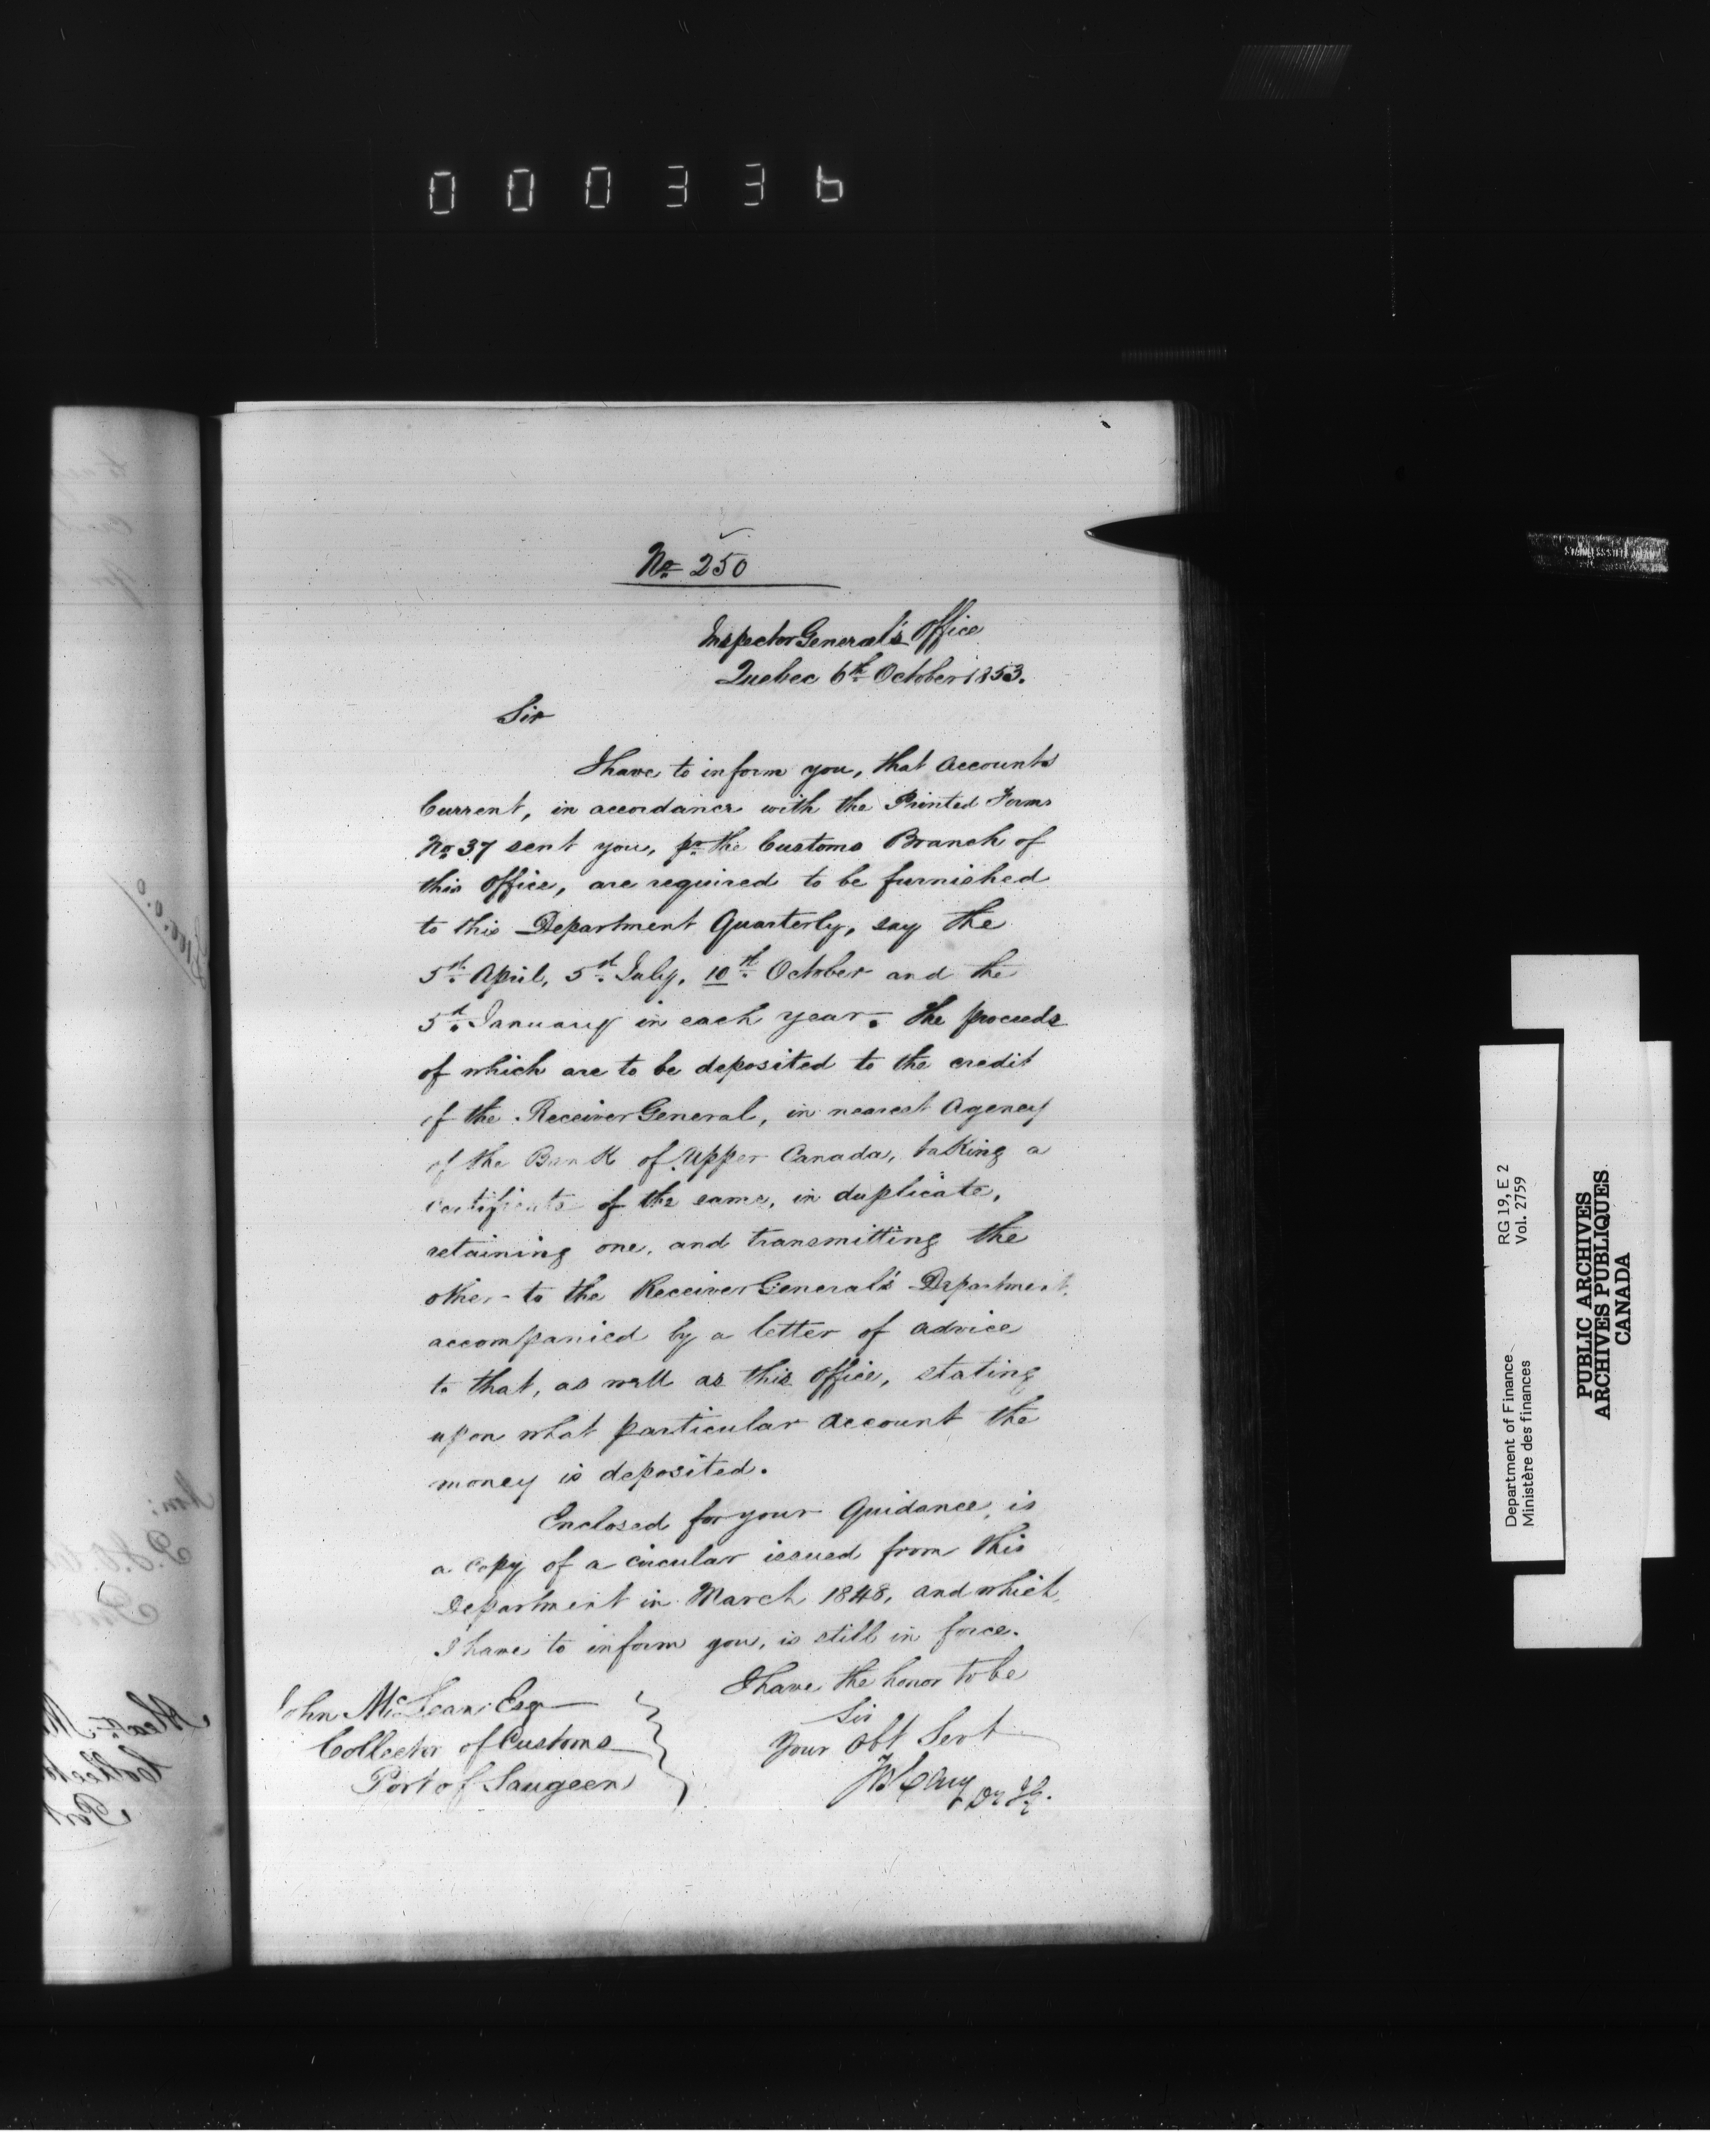 000336
No. 250
Inspector General's Office
Quebec 6th October 1853.
Sir
I have to inform you, that Accounts
Current, in accordance with the Printed Forms
No 37 sent you, pr the Customs Branch of
this Office, are required to be furnished
to this Department Quarterly, say the
5th April, 5th July, 10th October and the
5th January in each year. The proceeds
of which are to be deposited to the credit
of the Receiver General, in nearest Agency
of the Bank of Upper Canada, taking a
certificate of the same, in duplicate,
retaining one, and transmitting the
other to the Receiver General's Department,
accompanied by a letter of advice
to that, as well as this Office, stating
upon what particular account the
money is deposited.
Enclosed for your Guidance, is
a copy of a circular issued from this
Department in March 1848, and which,
I have to inform you, is still in force.
I have the honor to be
Sir
Your Obt Servt
John McLean Esqr
Collector of Customs
Port of Saugeen
STAINLESS STEEL JAPAN
Department of Finance RG 19, E 2
Ministère des finances Vol. 2759
PUBLIC ARCHIVES
ARCHIVES PUBLIQUES
CANADA